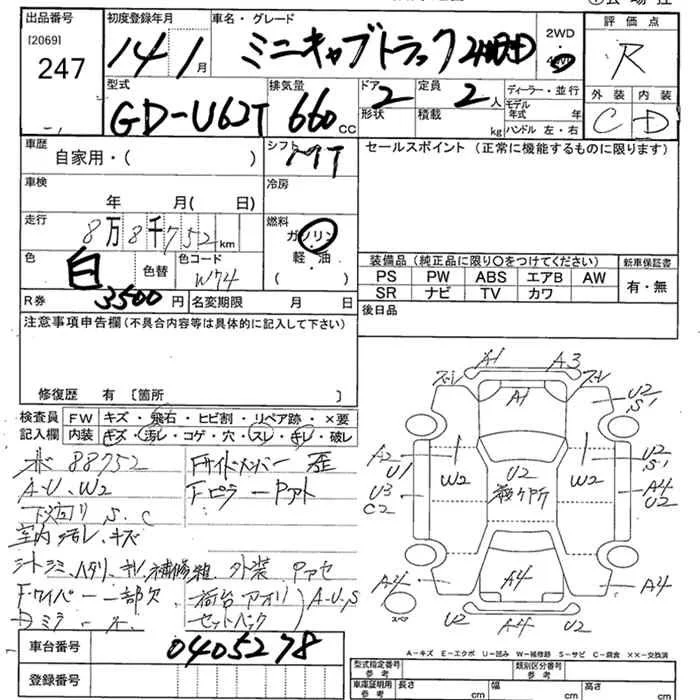 出品番号
[2069]
247
初度登録年月
14年1月
車名・グレード
ミニキャブトラック 4WD
2WD
4WD
評価点
R
外装 内装
C D
型式
GD-U62T
排気量
660cc
ドア 2
形状
定員 2人
積載 kg
ディーラー・並行
モデル年式 年
ハンドル 左・右
車歴
自家用・( )
シフト
MT
セールスポイント(正常に機能するものに限ります)
車検
年 月( 日)
冷房
走行
8万8千752km
燃料
ガソリン
軽・油
( )
色
白
色替
色コード
W74
R券
3500円
名変期限 月 日
装備品(純正品に限り○をつけてください)
PS PW ABS エアB AW
SR ナビ TV カワ
新車保証書
有・無
後日品
注意事項申告欄(不具合内容等は具体的に記入して下さい)
修復歴 有〔箇所 〕
検査員記入欄
FW キズ・飛石・ヒビ割・リペア跡・×要
内装 キズ・汚レ・コゲ・穴・スレ・キレ・破レ
88752
A-U、W2
下廻り S、C
室内 汚レ、キズ
シートシミ、ハタリ、キレ、補修粗、外装 Pアセ
Fワイパー 一部欠
Fサイドメンバー 歪
Fピラー Pアト
荷台アオリ
A-U、S
A1 A3
A1
U2
S1
A2
U1
W2
U2
W2
U2
S1
U3
C2
A4
U2
A4
A4
A4
U2 A4 U2
スペア
A-キズ E-エクボ U-凹み W-補修跡 S-サビ C-腐食 ××-交換済
車台番号
0405278
登録番号
型式指定番号
参考
類別区分番号
参考
車庫証明用
参考
長さ cm
幅 cm
高さ cm